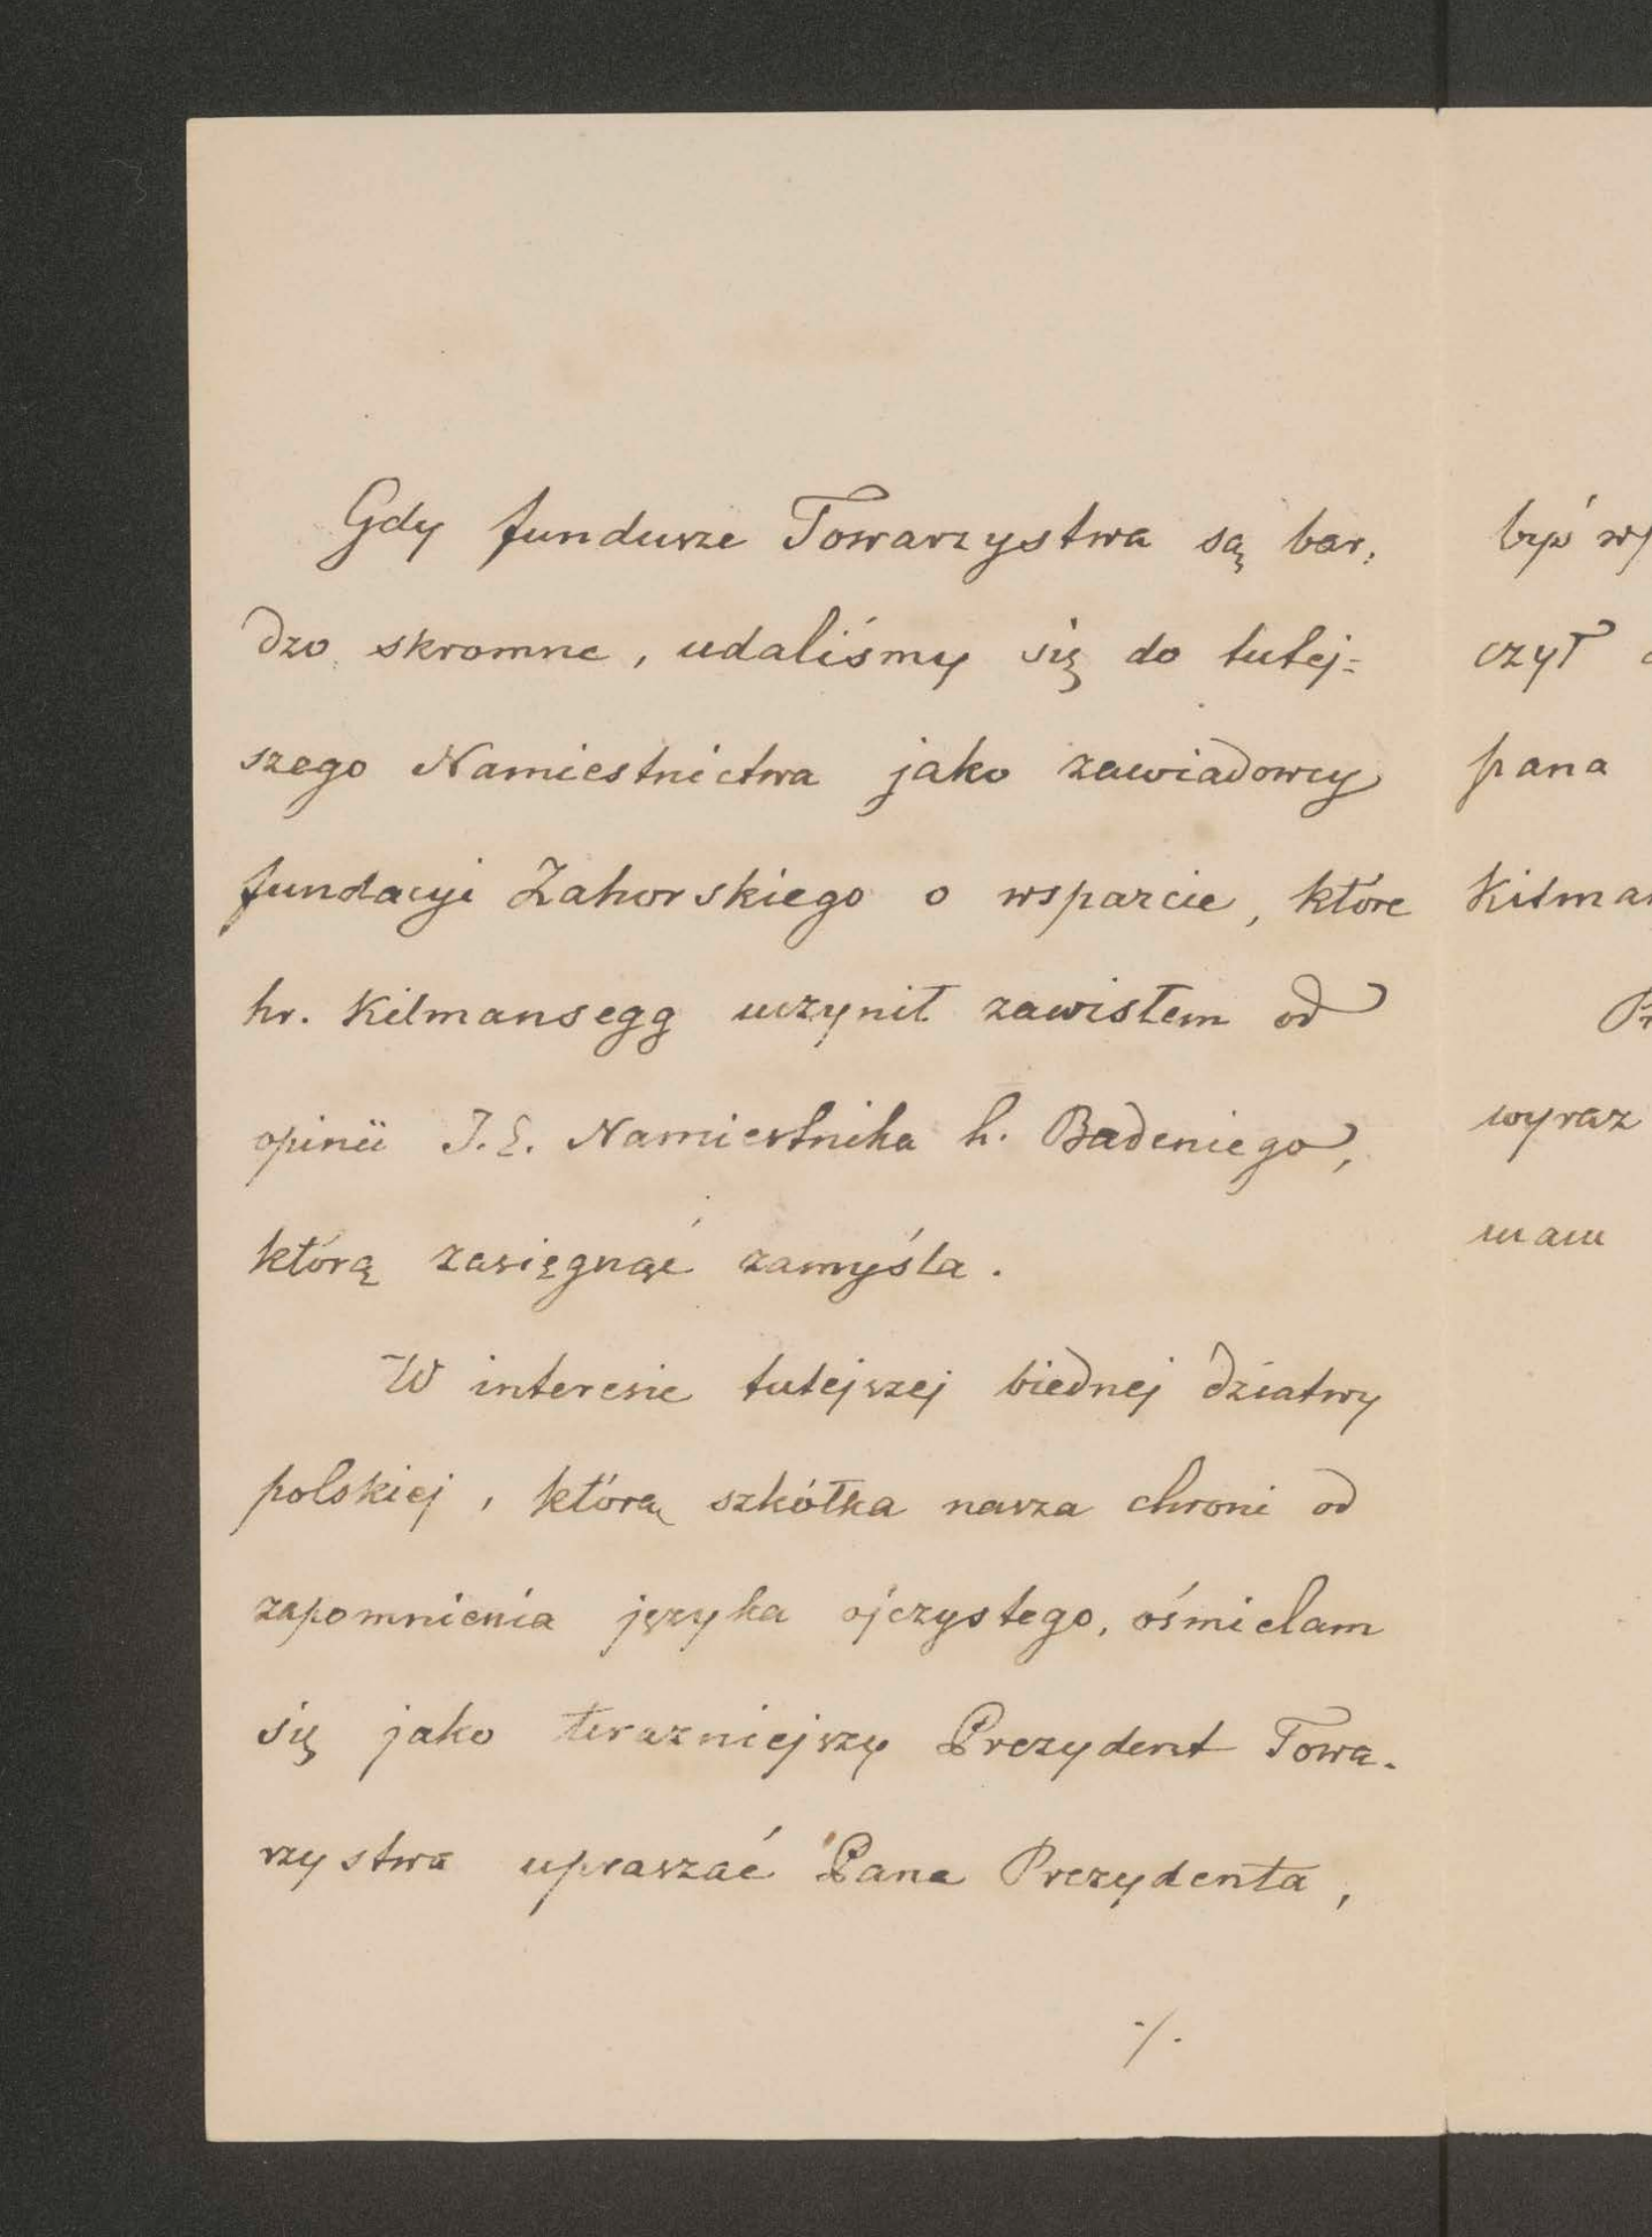 Gdy fundusze Towarzystwa są bar:
dzo skromne, udaliśmy się do tutej=
szego Namiestnictwa jako zawiadowcy
fundacyi Zahorskiego o wsparcie, które
hr. Kilmansegg uczynił zawisłem od
opinii J.E. Namiestnika h. Badeniego,
którą zasięgnąć zamyśla.
W interesie tutejszej biednej dziatwy
polskiej, którą szkółka nasza chroni od
zapomnienia języka ojczystego, ośmielam
się jako teraźniejszy Prezydent Towa-
rzystwa upraszać Pana Prezydenta,
./.
być
czył
pana
Kilman
Pr
wyraz
mam